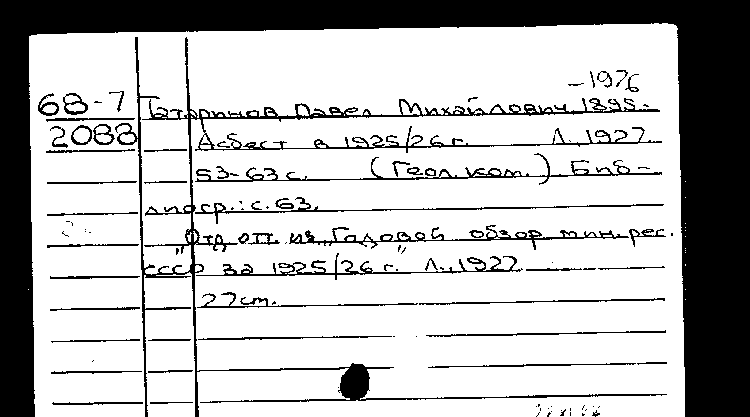 -1976
68-7 Татаринов, Павел Михайлович, 1895-
2088 Асбест в 1925/26 г. Л., 1927.
53-63 с. (Геол. ком.) Биб-
лиогр.: с. 63.
"Отд. отт. из "Годовой обзор мин. рес.
СССР за 1925/26 г." Л., 1927
27 cm.